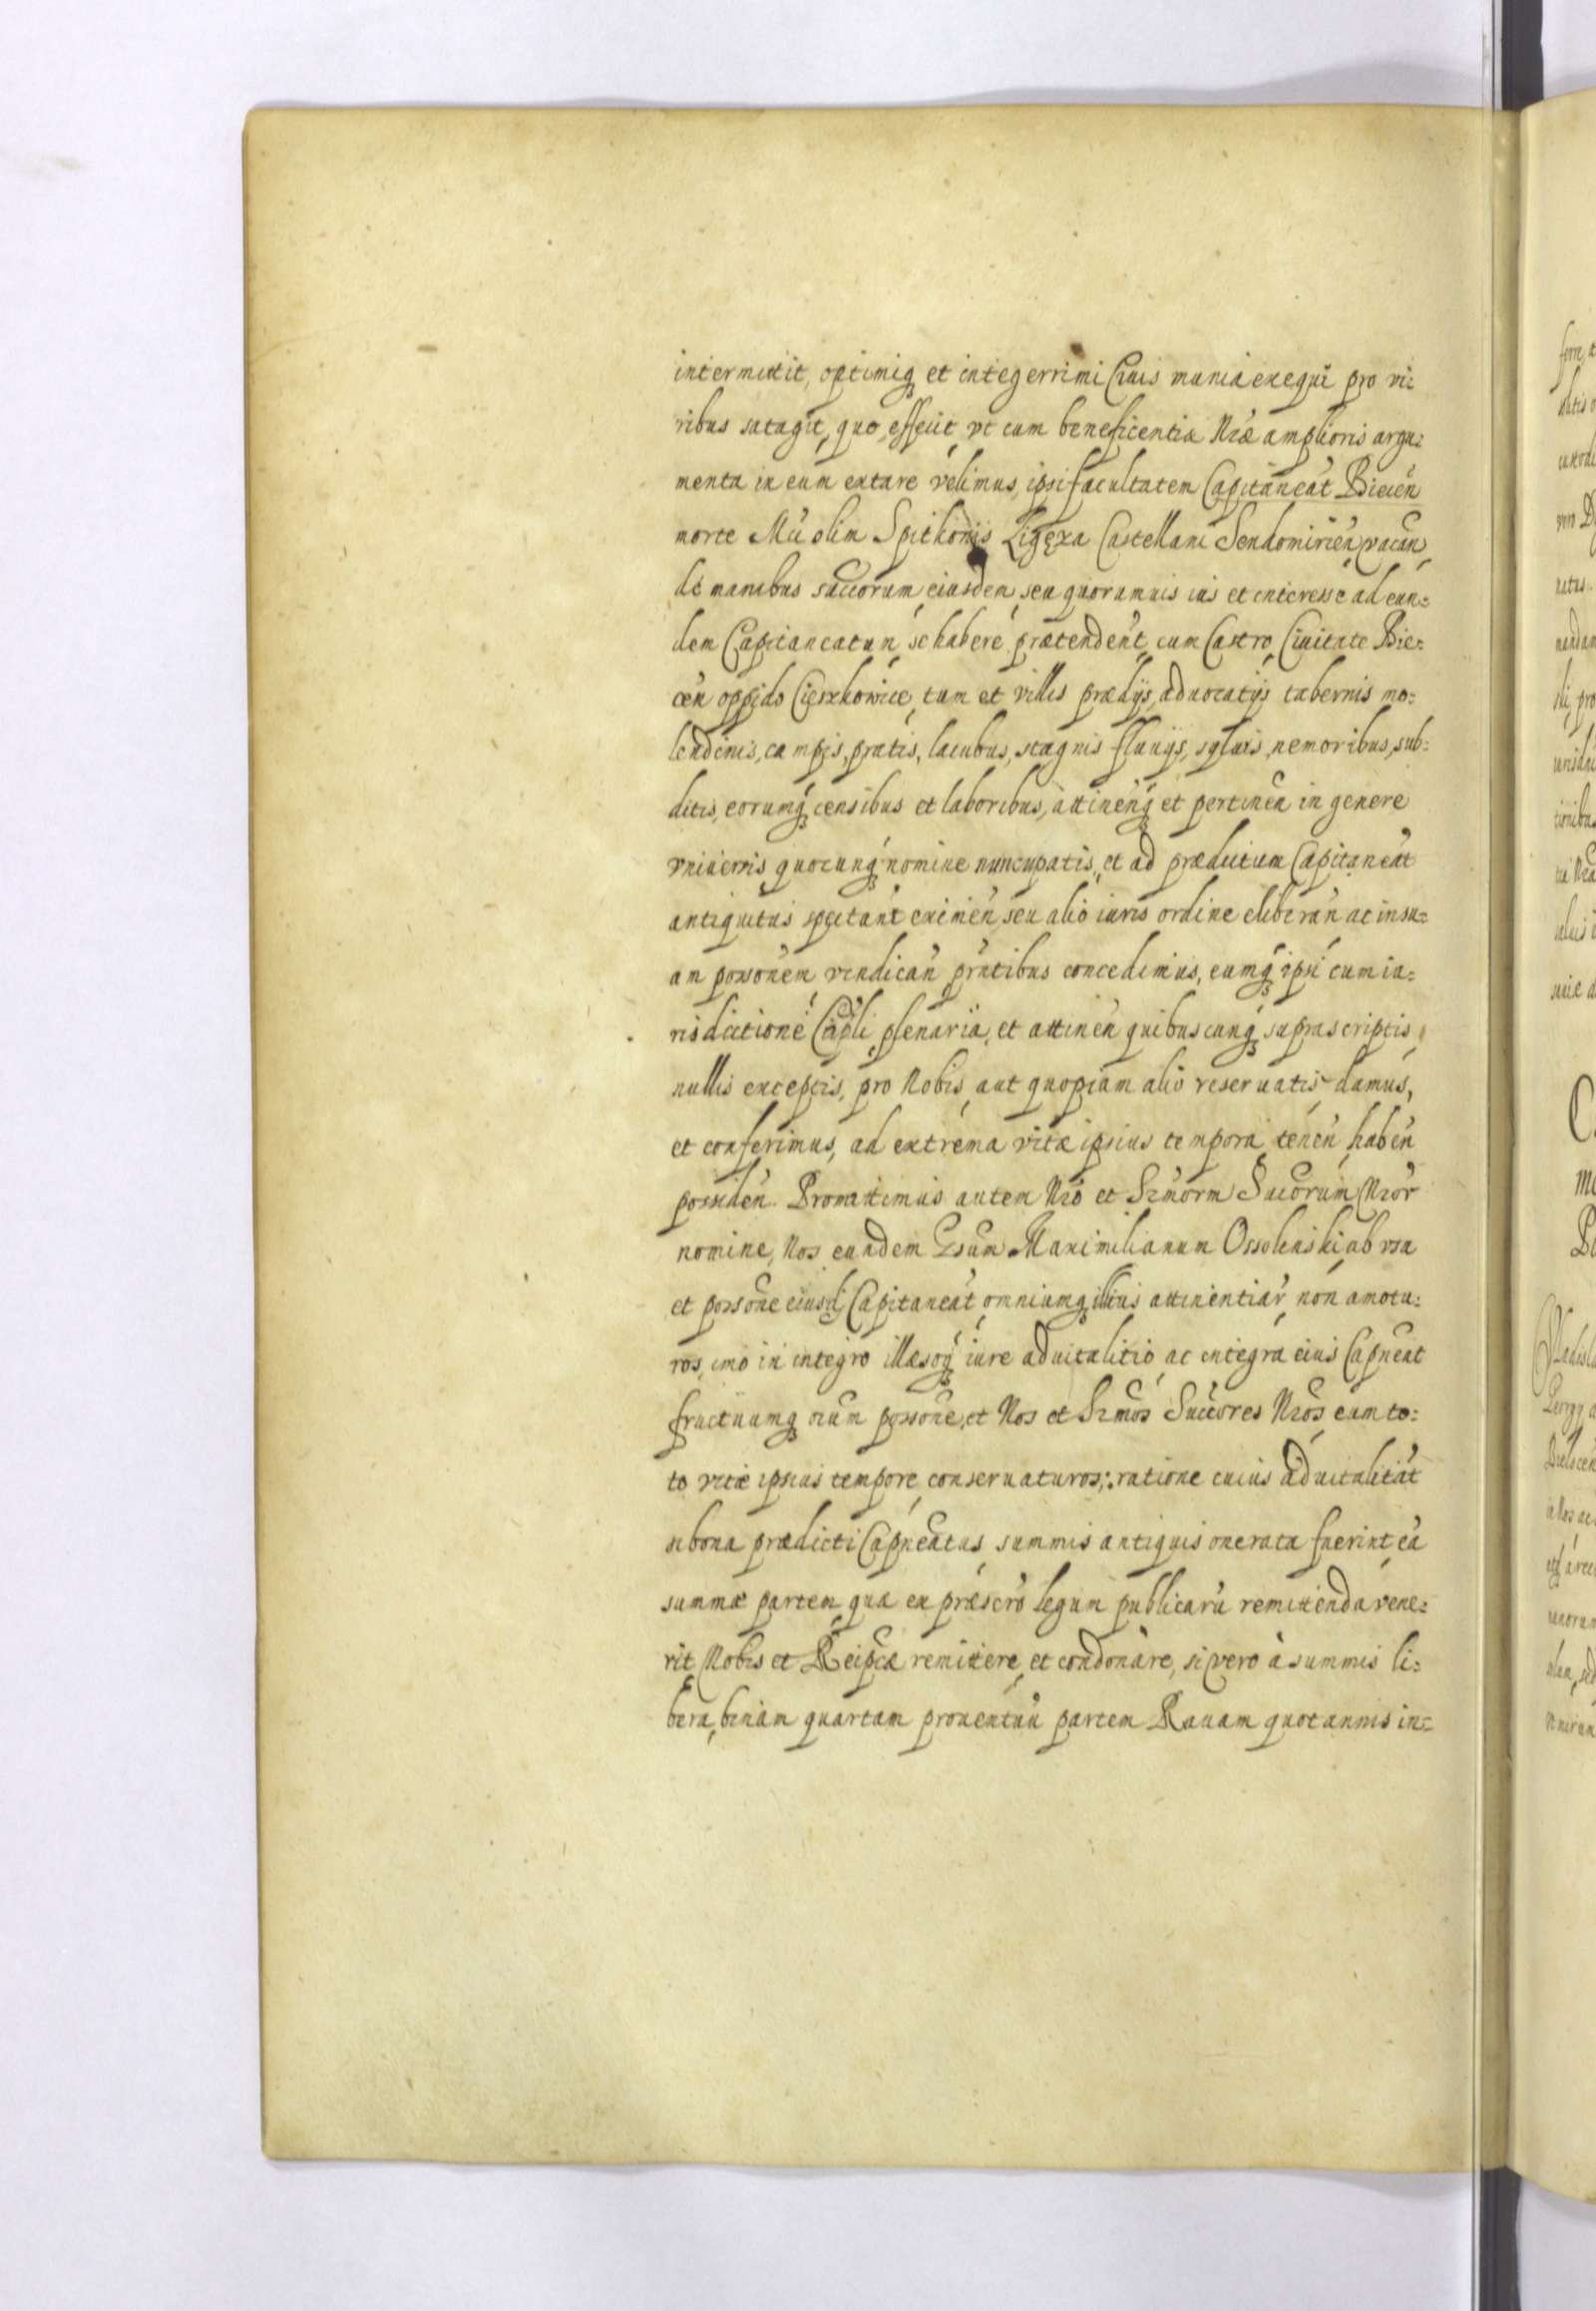 intermittit, optimiq₃ et integerrimi Ciuis munia exequi pro vi=
ribus satagit, quo effecit vt cum beneficentiæ Nræ amplioris argu=
menta in eum extare velimus, ipsi facultatem Capitaneat Biecen
morte Mci olim Spitkonis Ligęza Castellani Sendomirien, vacan
de manibus succorum eiusdem, seu quorumuis ius et interesse ad eun=
dem Capitaneatum se habere prætendent, cum Castro, Ciuitate Bie=
cen oppido Cięszkowice, tum et villis prædijs, aduocatijs tabernis mo=
lendinis, campis, pratis, lacubus, stagnis fluuijs, syluis, nemoribus, sub=
ditis, eorumq₃ censibus et laboribus, attinenq₃ et pertinen in genere
vniuersis quocunq₃ nomine nuncupatis, et ad prædictum Capitaneat
antiquitus spectant eximen seu alio iuris ordine eliberan ac in su=
am possonem vendican prntibus concedimus, eumq₃ ipsi cum iu=
risdictione Capli plenaria, et attinen quibuscunq₃ suprascriptis
nullis exceptis, pro Nobis aut quopiam alio reseruatis damus,
et conferimus, ad extrema vitæ ipsius tempora tenen haben
possiden. Promittimus autem Nro et Srmorm Succorum Nror
nomine, Nos eundem Gsum Maximilianum Ossolenski ab vsu
et possone eiusd Capitaneat omniumq₃ illius attinentiar non amotu=
ros, imo in integro illæsoq₃ iure aduitalitio ac integra eius Capneat
fructuumq₃ oium possone, et Nos et Srmos Succores Nros eum to=
to vitæ ipsius tempore conseruaturos; ratione cuius aduitalitat
si bona prædicti Capneatus summis antiquis onerata fuerint ea
summæ partem quæ ex præscro legum publicaru remittenda vene=
rit Nobis et Reipcæ remittere et condonare, si vero à summis li=
bera, quartam prouentuu partem Rauam quotannis in=